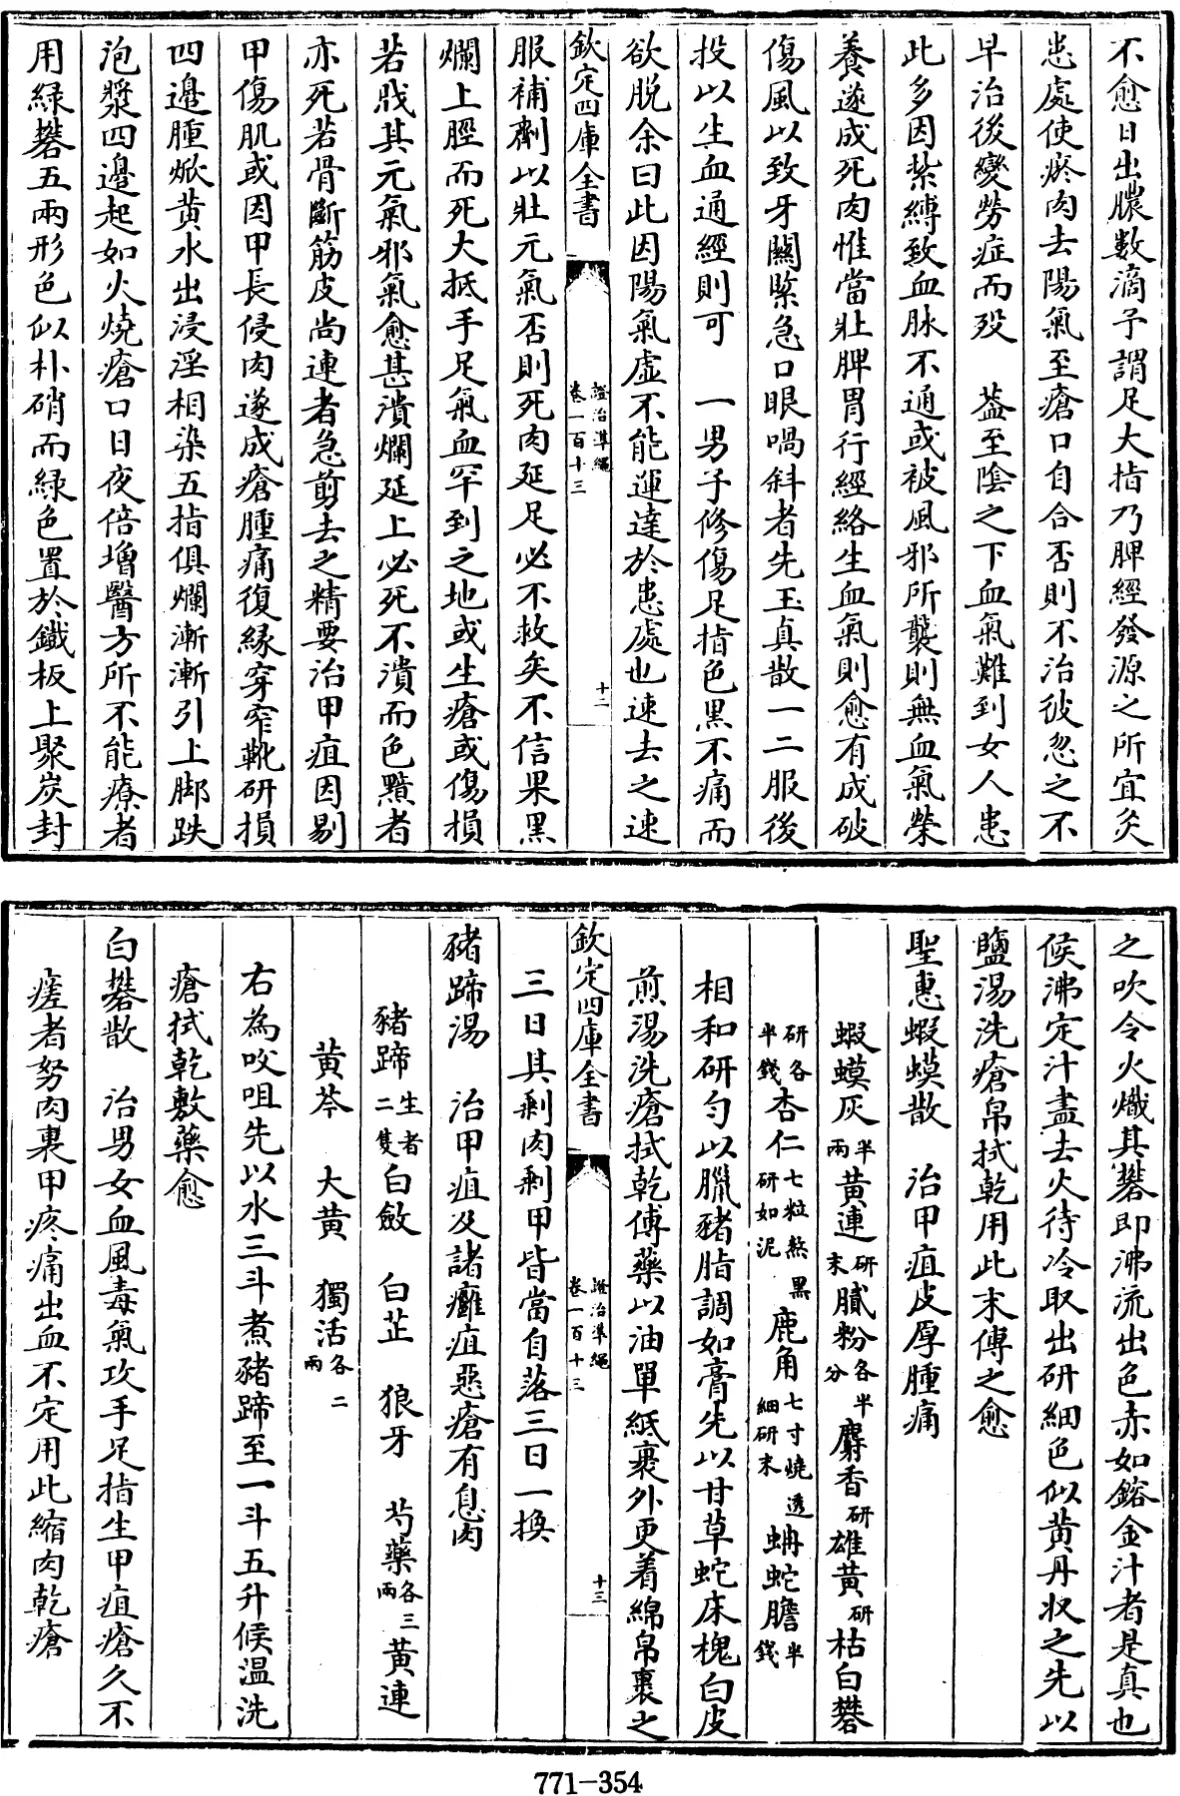 不愈日出膿數滴予謂足大指乃脾經發源之所宜灸
患處使瘀肉去陽氣至瘡口自合否則不治彼忽之不
早治後變勞症而歿　葢至陰之下血氣難到女人患
此多因紮縛致血脉不通或被風邪所襲則無血氣榮
養遂成死肉惟當壯脾胃行經絡生血氣則愈有成破
傷風以致牙關緊急口眼喎斜者先玉真散一二服後
投以生血通經則可　一男子修傷足指色黒不痛而
欲脱余曰此因陽氣虛不能運達於患處也速去之速
欽定四庫全書　證治準繩　卷一百十三　十二
服補劑以壯元氣否則死肉延足必不救矣不信果黒
爛上脛而死大抵手足氣血罕到之地或生瘡或傷損
若戕其元氣邪氣愈甚潰爛延上必死不潰而色黯者
亦死若骨斷筋皮尚連者急剪去之精要治甲疽因剔
甲傷肌或因甲長侵肉遂成瘡腫痛復緣穿窄靴研損
四邉腫焮黄水出浸淫相染五指俱爛漸漸引上脚趺
泡漿四邉起如火燒瘡口日夜倍增醫方所不能療者
用綠礬五兩形色似朴硝而綠色置於鐵板上聚炭封
之吹令火熾其礬即沸流出色赤如鎔金汁者是真也
候沸定汁盡去火待冷取出研細色似黄丹收之先以
鹽湯洗瘡帛拭乾用此末傅之愈
聖惠蝦蟆散　治甲疽皮厚腫痛
蝦蟆灰半兩黄連研末膩粉各半分麝香研雄黄研枯白礬
研各半錢杏仁七粒熬黒研如泥鹿角七寸燒透細研末蚺蛇膽半錢
相和研勻以臘豬脂調如膏先以甘草蛇床槐白皮
煎湯洗瘡拭乾傅藥以油單紙裹外更着綿帛裹之
欽定四庫全書　證治準繩　卷一百十三　十三
三日其剩肉剩甲皆當自落三日一換
豬蹄湯　治甲疽及諸癰疽惡瘡有息肉
豬蹄生者二隻白斂　白芷　狼牙　芍藥各三兩黄連
黄芩　大黄　獨活各二兩
右為㕮咀先以水三斗煮豬蹄至一斗五升候温洗
瘡拭乾敷藥愈
白礬散　治男女血風毒氣攻手足指生甲疽瘡久不
瘥者努肉裹甲疼痛出血不定用此縮肉乾瘡
771-354